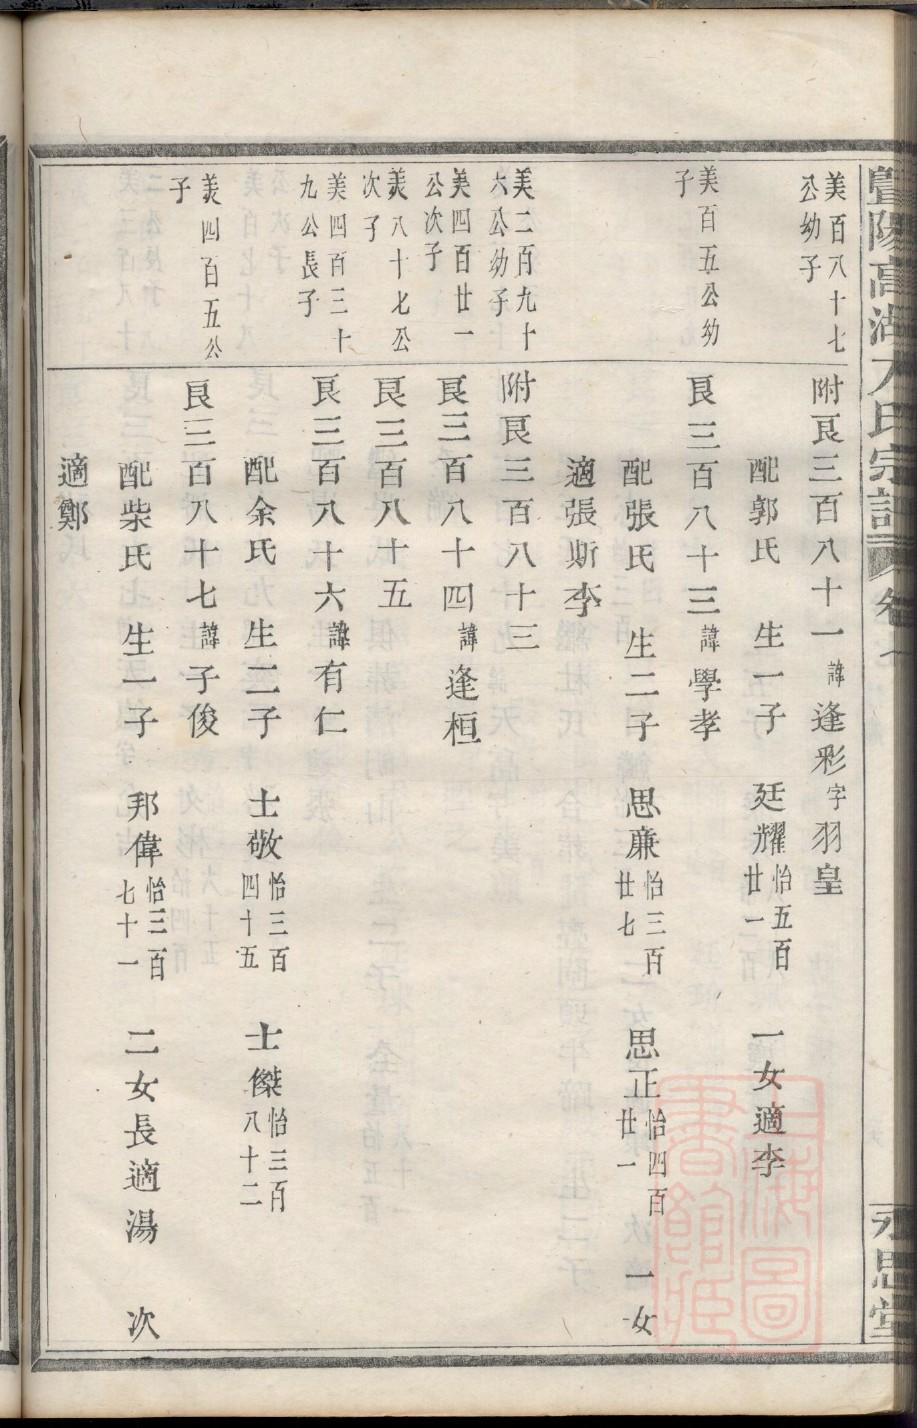 暨陽高湖
氏宗譜
永思堂
美百八十七
公幼子
附艮三百八十一諱逢彩字羽皇
配郭氏 生一子 廷耀怡五百廿一 一女適李
美百五公幼
子
艮三百八十三諱學孝
配張氏 生二子 思廉怡三百廿七 思正怡四百廿一 一女
適張斯李
美二百九十
六公幼子
附艮三百八十三
美四百廿一
公次子
艮三百八十四諱逢桓
美八十七公
次子
艮三百八十五
美四百三十
九公長子
艮三百八十六諱有仁
配余氏 生二子 士敬怡三百四十五 士傑怡三百八十二
美四百五公
子
艮三百八十七諱子俊
配柴氏 生一子 邦偉怡三百七十一 二女長適湯 次
適鄭